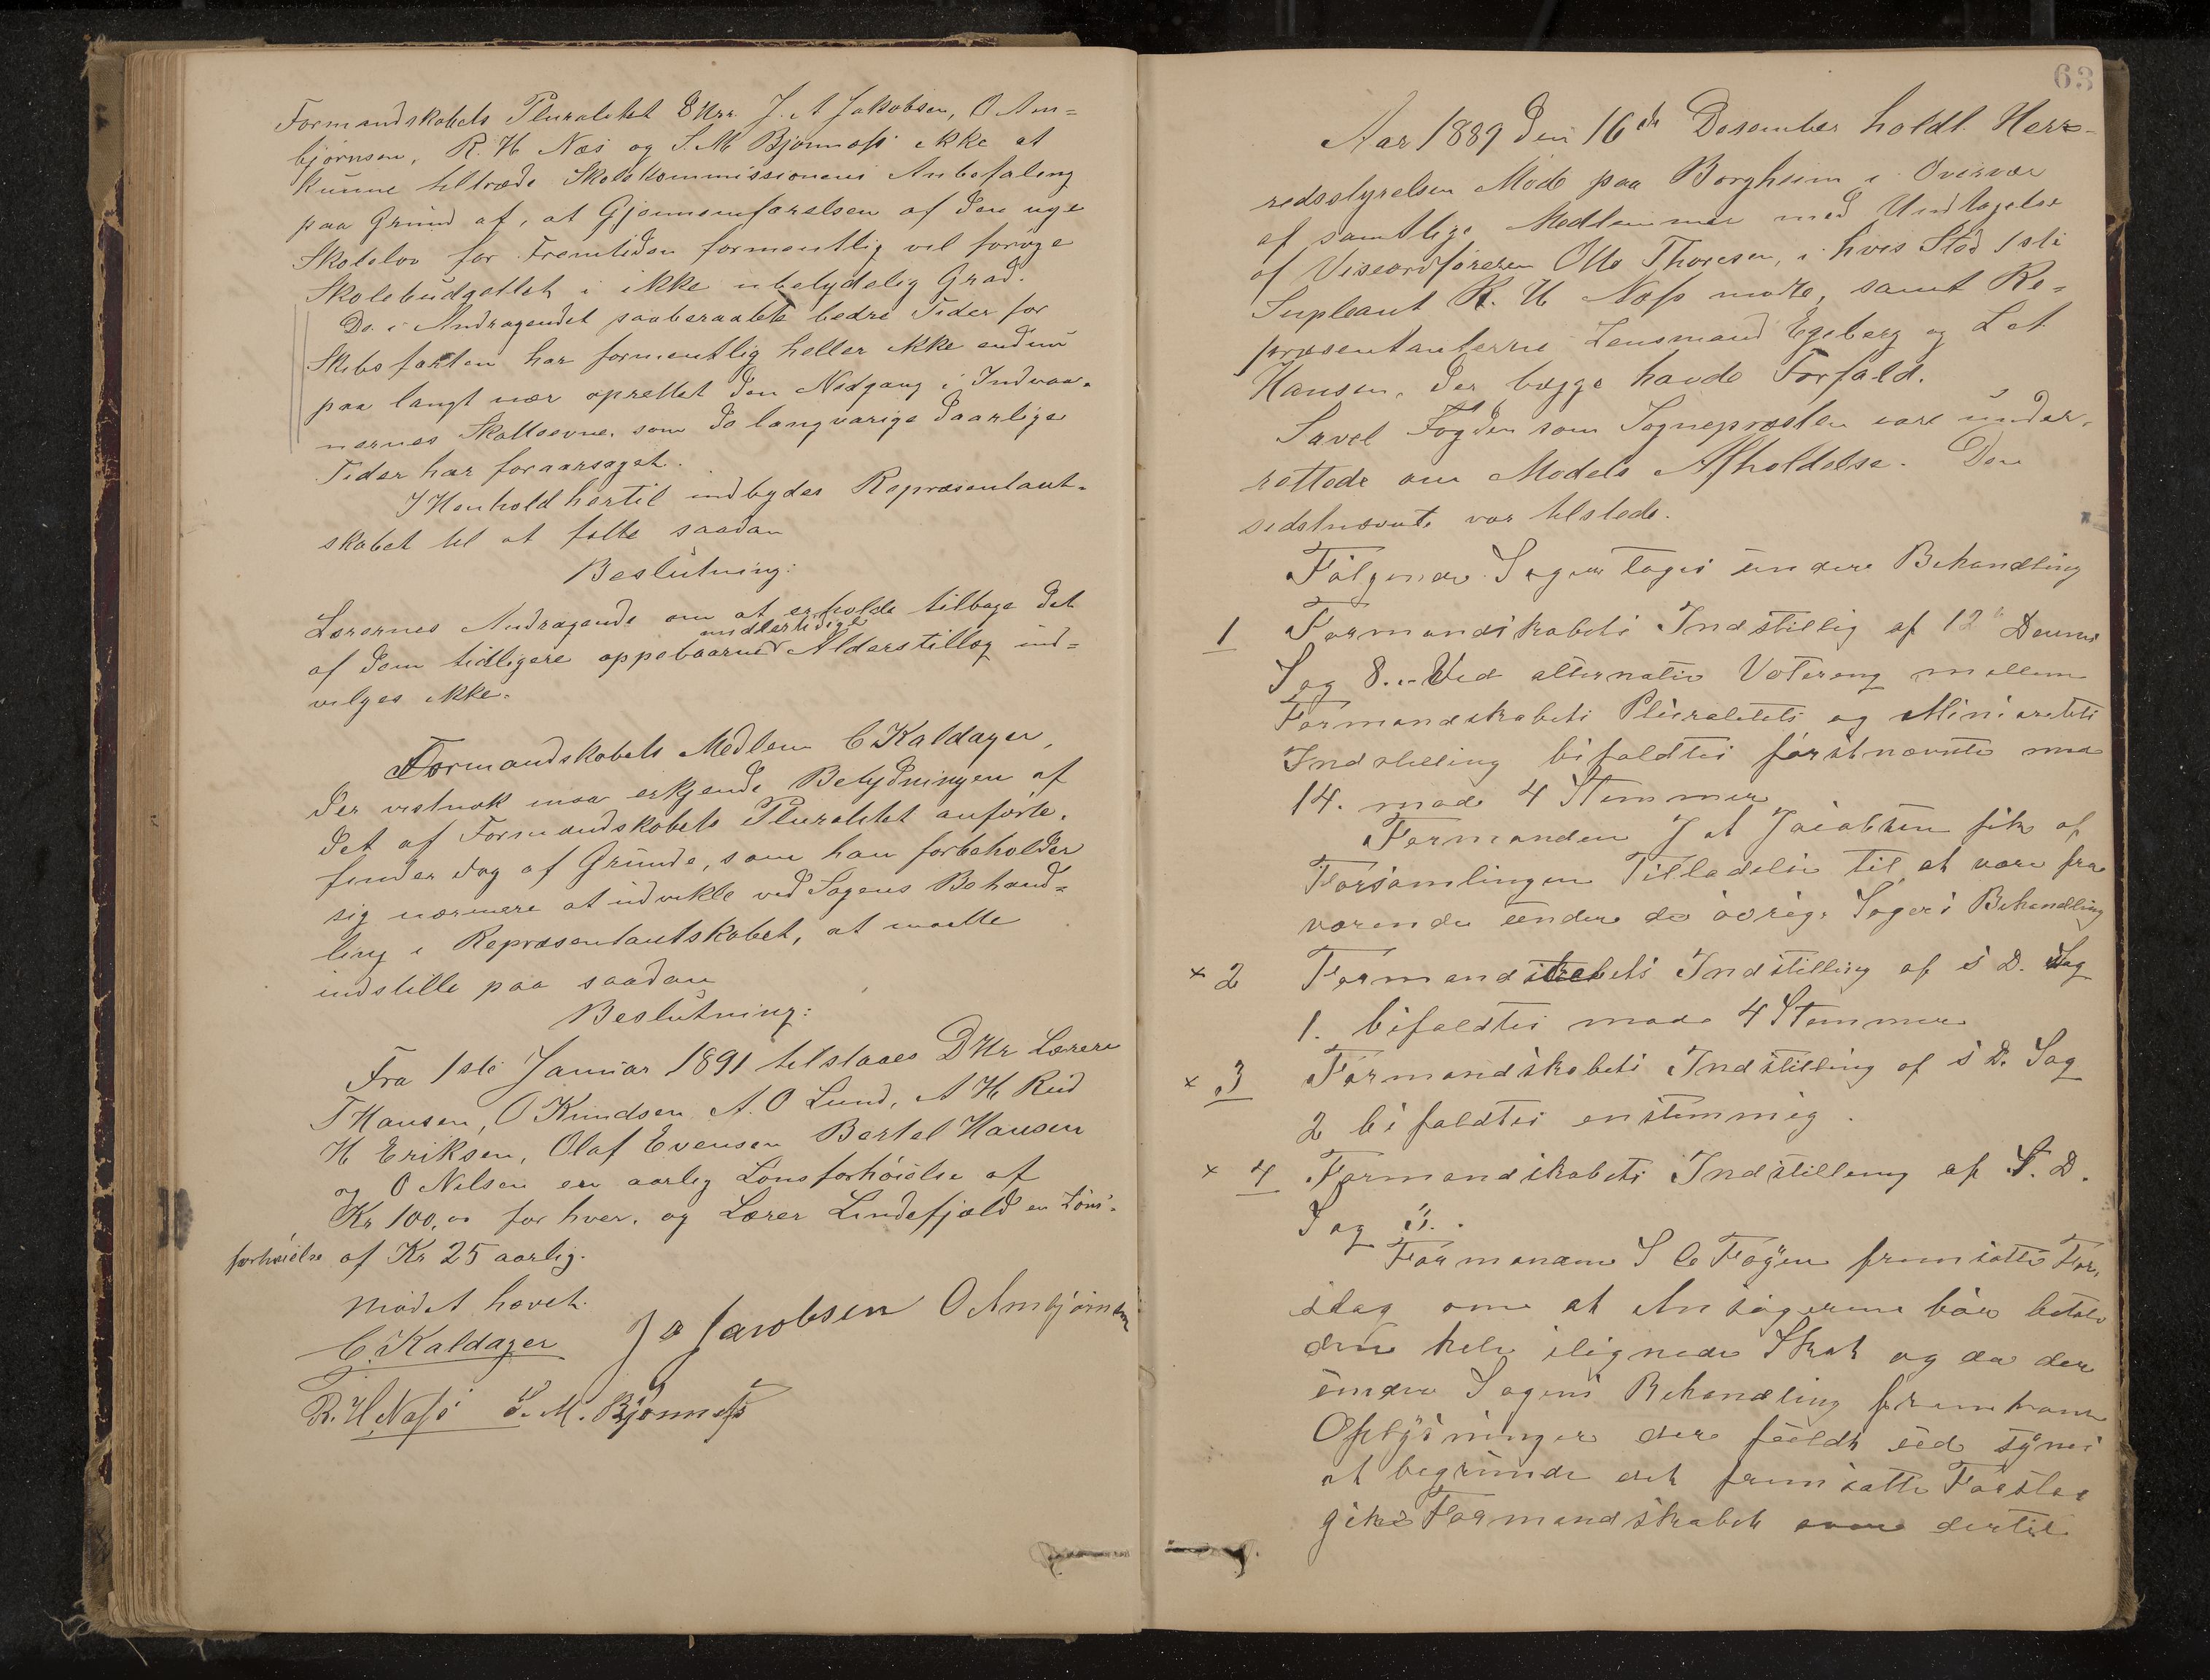 Formandskabets Pluralitet DHrr J. A Jakobsen, O Am=
bjørnsen, R. H Næs og S. M Bjønness ikke at
kunne tiltræde Skolekommissionens Anbefaling
paa Grund af, at Gjennemførelsen af den nye
Skolelov for Fremtiden formentlig vil forøge
Skolebudgettet i ikke ubetydelig Grad.
De i Andragendet paaberaabte bedre Tider for
Skibsfarten har formentlig heller ikke endnu
paa langt nær oprettet den Nedgang i Indvaa=
nernes Skatteevne, som de langvarige daarlige
Tider har foraarsaget.
I Henhold hertil indbydes Repræsentant=
skabet til at fatte saadan
Beslutning:
Lærernes Andragende om at erholde tilbage det
af dem tidligere oppebaarne midlertidige Alderstillæg ind=
vilges ikke.
Formandskabets Medlem C Kaldager,
der vistnok maa erkjende Betydningen af
det af Formandskabets Pluralitet anførte,
finder dog af Grunde, som han forbeholder
sig nærmere at udvikle ved Sagens Behand=
ling i Repræsentantskabet, at maatte
indstille paa saadan
Beslutning:
Fra 1ste Januar 1891 tilstaaes DHr Lærere
T Hansen, O Knudsen A. O Lund, A H Rud
H Eriksen, Olaf Evensen Bertel Hansen
og O Nilsen en aarlig Lønsforhøielse af
Kr 100,00 for hver, og Lærer Lindefjeld en Løns=
forhøielse af Kr 25 aarlig.
Mødet hævet.
C. Kaldager J A Jacobsen O Ambjørnsen
R. H. Næss S. M. Bjønness
63
Aar 1889 den 16de Desember holdt Her=
redsstyrelsen Møde paa Borgheim i Overvær
af samtlige Medlemmer med Undtagelse
af Viseordføreren Otto Thoresen, i hvis Sted 1ste
Supleant R. H Næss mødte, samt Re=
præsentanterne Lensmand Egeberg og L A
Hansen, der begge havde Forfald.
Savel Fogden som Sognepræsten vare under=
rettede om Mødets Afholdelse. Den
sidstnævnte var tilstede.
Følgende Sager toges under Behandling
1 Formandskabets Indstillig af 12 Dennes
Sag 8. Ved alternativ Votering mellem
Formandskabets Pluralitets og Minioritets
Indstilling bifaldtes førstnævnte med
14. mod 4 Stemmer
Formanden J A Jacobsen fik af
Forsamlingen Tilladelse til at være fra
værende under de øvrige Sagers Behandling
× 2 Formandskabets Indstilling af s D. Sag
1. bifaldtes mod 4 Stemmer
× 3 Formandskabets Indstilling af s D. Sag
2 bifaldtes enstemmig.
× 4 Formandskabets Indstilling af S. D.
Sag 3.
Formanden S C Fogen fremsatte For
slag om at Ansøgerne bør betale
den hele ilignede Skat og da der
under Sagens Behandling fremkom
Oplysninger der fuldt ud synes
at begrunde det fremsatte Forslag
gik Formandskabet over dertil